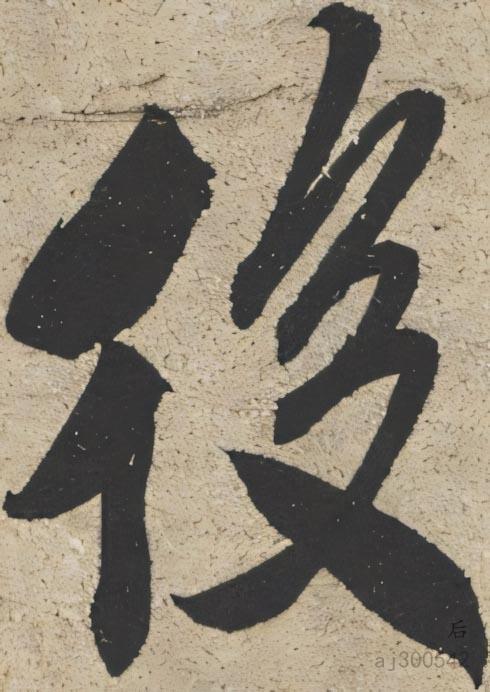 後
后
aj300542